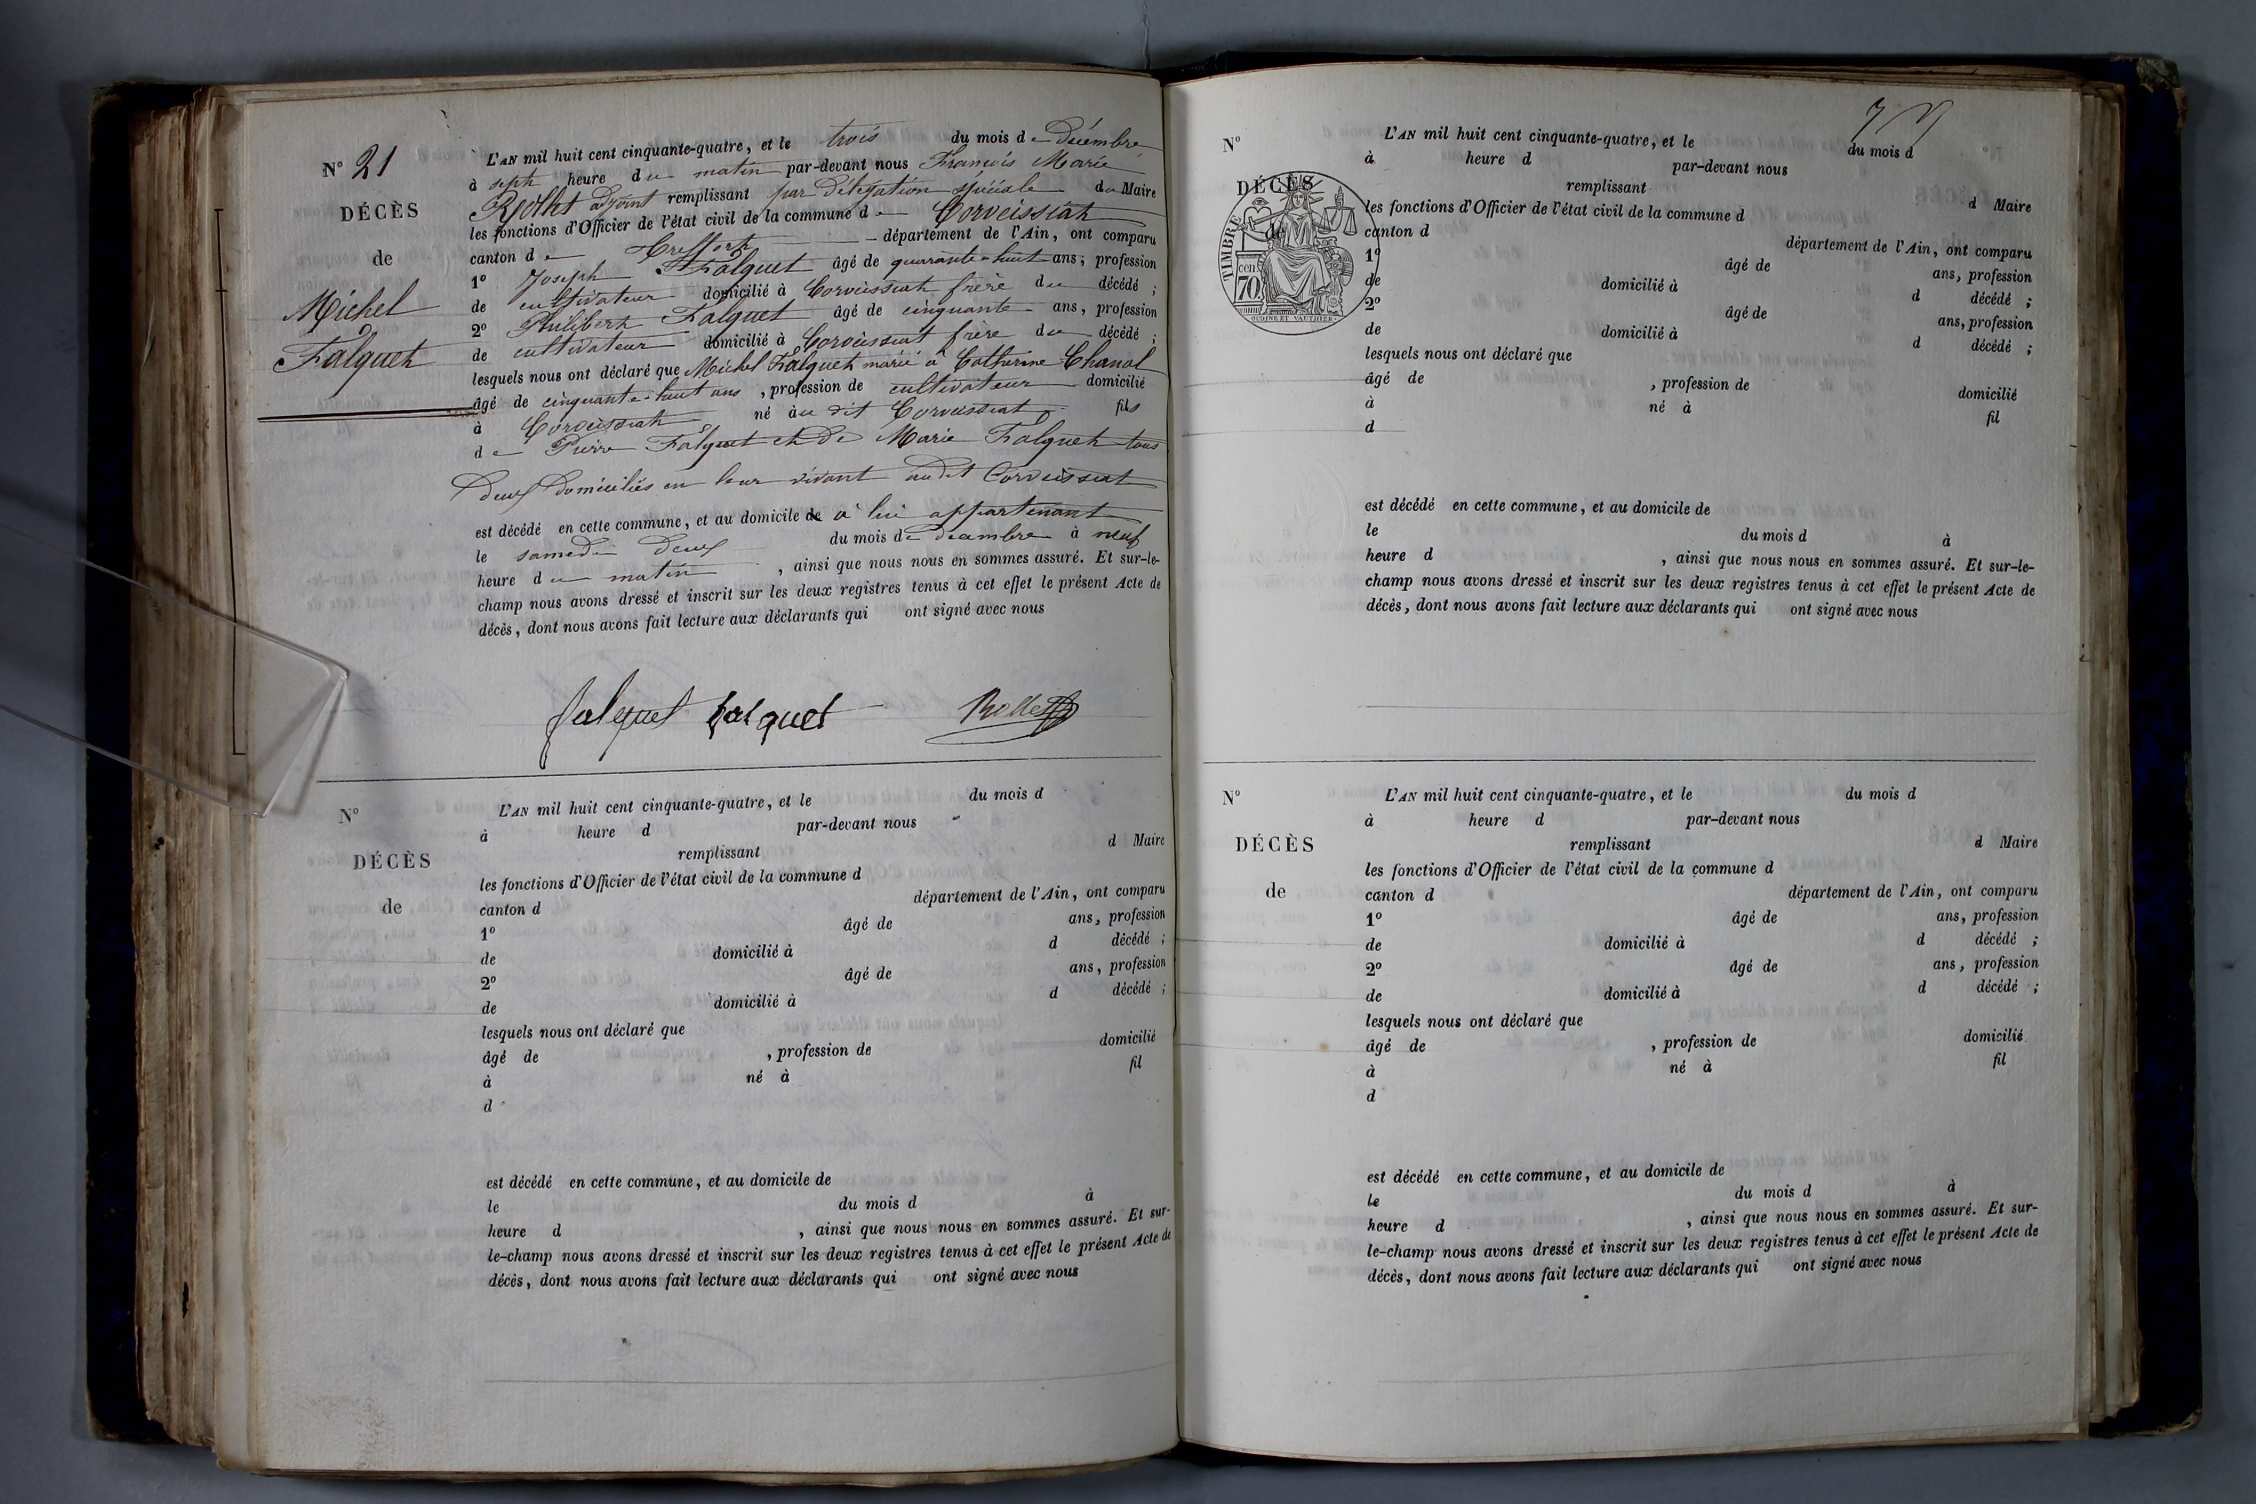 N° 21
DÉCÈS
de
Michel
Falquet
L'AN mil huit cent cinquante-quatre, et le trois du mois de décembre
à sept heure du matin par-devant nous François Marie
adjoint remplissant par délégation spéciale du Maire
les fonctions d'Officier de l'état civil de la commune de Corveissiat
canton de Treffort département de l'Ain, ont comparu
1° Joseph Falquet âgé de quarante-huit ans, profession
de cultivateur domicilié à Corveissiat frère du décédé ;
2° Philibert Falquet âgé de cinquante ans, profession
de cultivateur domicilié à Corveissiat frère du décédé ;
lesquels nous ont déclaré que Michel Falquet marié à Catherine Chanal
âgé de cinquante-huit ans , profession de cultivateur domicilié
à Corveissiat né au dit Corveissiat fils
de Pierre Falquet et de Marie Falquet tous
deux domiciliés en leur vivant audit Corveissiat
est décédé en cette commune, et au domicile de à lui appartenant
le samedi deux du mois de décembre à neuf
heure du matin , ainsi que nous nous en sommes assuré. Et sur-le-
champ nous avons dressé et inscrit sur les deux registres tenus à cet effet le présent Acte de
décès, dont nous avons fait lecture aux déclarants qui ont signé avec nous
falquet falquet
N°
DÉCÈS
de
L'AN mil huit cent cinquante-quatre, et le du mois d
à heure d par-devant nous
remplissant d Maire
les fonctions d'Officier de l'état civil de la commune d
canton d département de l'Ain, ont comparu
1° âgé de ans, profession
de domicilié à d décédé ;
2° âgé de ans, profession
de domicilié à d décédé ;
lesquels nous ont déclaré que
âgé de , profession de domicilié
à né à fil
d
est décédé en cette commune, et au domicile de
le du mois d à
heure d , ainsi que nous nous en sommes assuré. Et sur-
le-champ nous avons dressé et inscrit sur les deux registres tenus à cet effet le présent Acte de
décès, dont nous avons fait lecture aux déclarants qui ont signé avec nous
N°
DÉCÈS
de
TIMBRE
cen
70
OUDINE ET VAUTHIER
L'AN mil huit cent cinquante-quatre, et le du mois d
à heure d par-devant nous
remplissant d Maire
les fonctions d'Officier de l'état civil de la commune d
canton d département de l'Ain, ont comparu
1° âgé de ans, profession
de domicilié à d décédé ;
2° âgé de ans, profession
de domicilié à d décédé ;
lesquels nous ont déclaré que
âgé de , profession de domicilié
à né à fil
d
est décédé en cette commune, et au domicile de
le du mois d à
heure d , ainsi que nous nous en sommes assuré. Et sur-le-
champ nous avons dressé et inscrit sur les deux registres tenus à cet effet le présent Acte de
décès, dont nous avons fait lecture aux déclarants qui ont signé avec nous
N°
DÉCÈS
de
L'AN mil huit cent cinquante-quatre, et le du mois d
à heure d par-devant nous
remplissant d Maire
les fonctions d'Officier de l'état civil de la commune d
canton d département de l'Ain, ont comparu
1° âgé de ans, profession
de domicilié à d décédé ;
2° âgé de ans, profession
de domicilié à d décédé ;
lesquels nous ont déclaré que
âgé de , profession de domicilié
à né à fil
d
est décédé en cette commune, et au domicile de
le du mois d à
heure d , ainsi que nous nous en sommes assuré. Et sur-
le-champ nous avons dressé et inscrit sur les deux registres tenus à cet effet le présent Acte de
décès, dont nous avons fait lecture aux déclarants qui ont signé avec nous